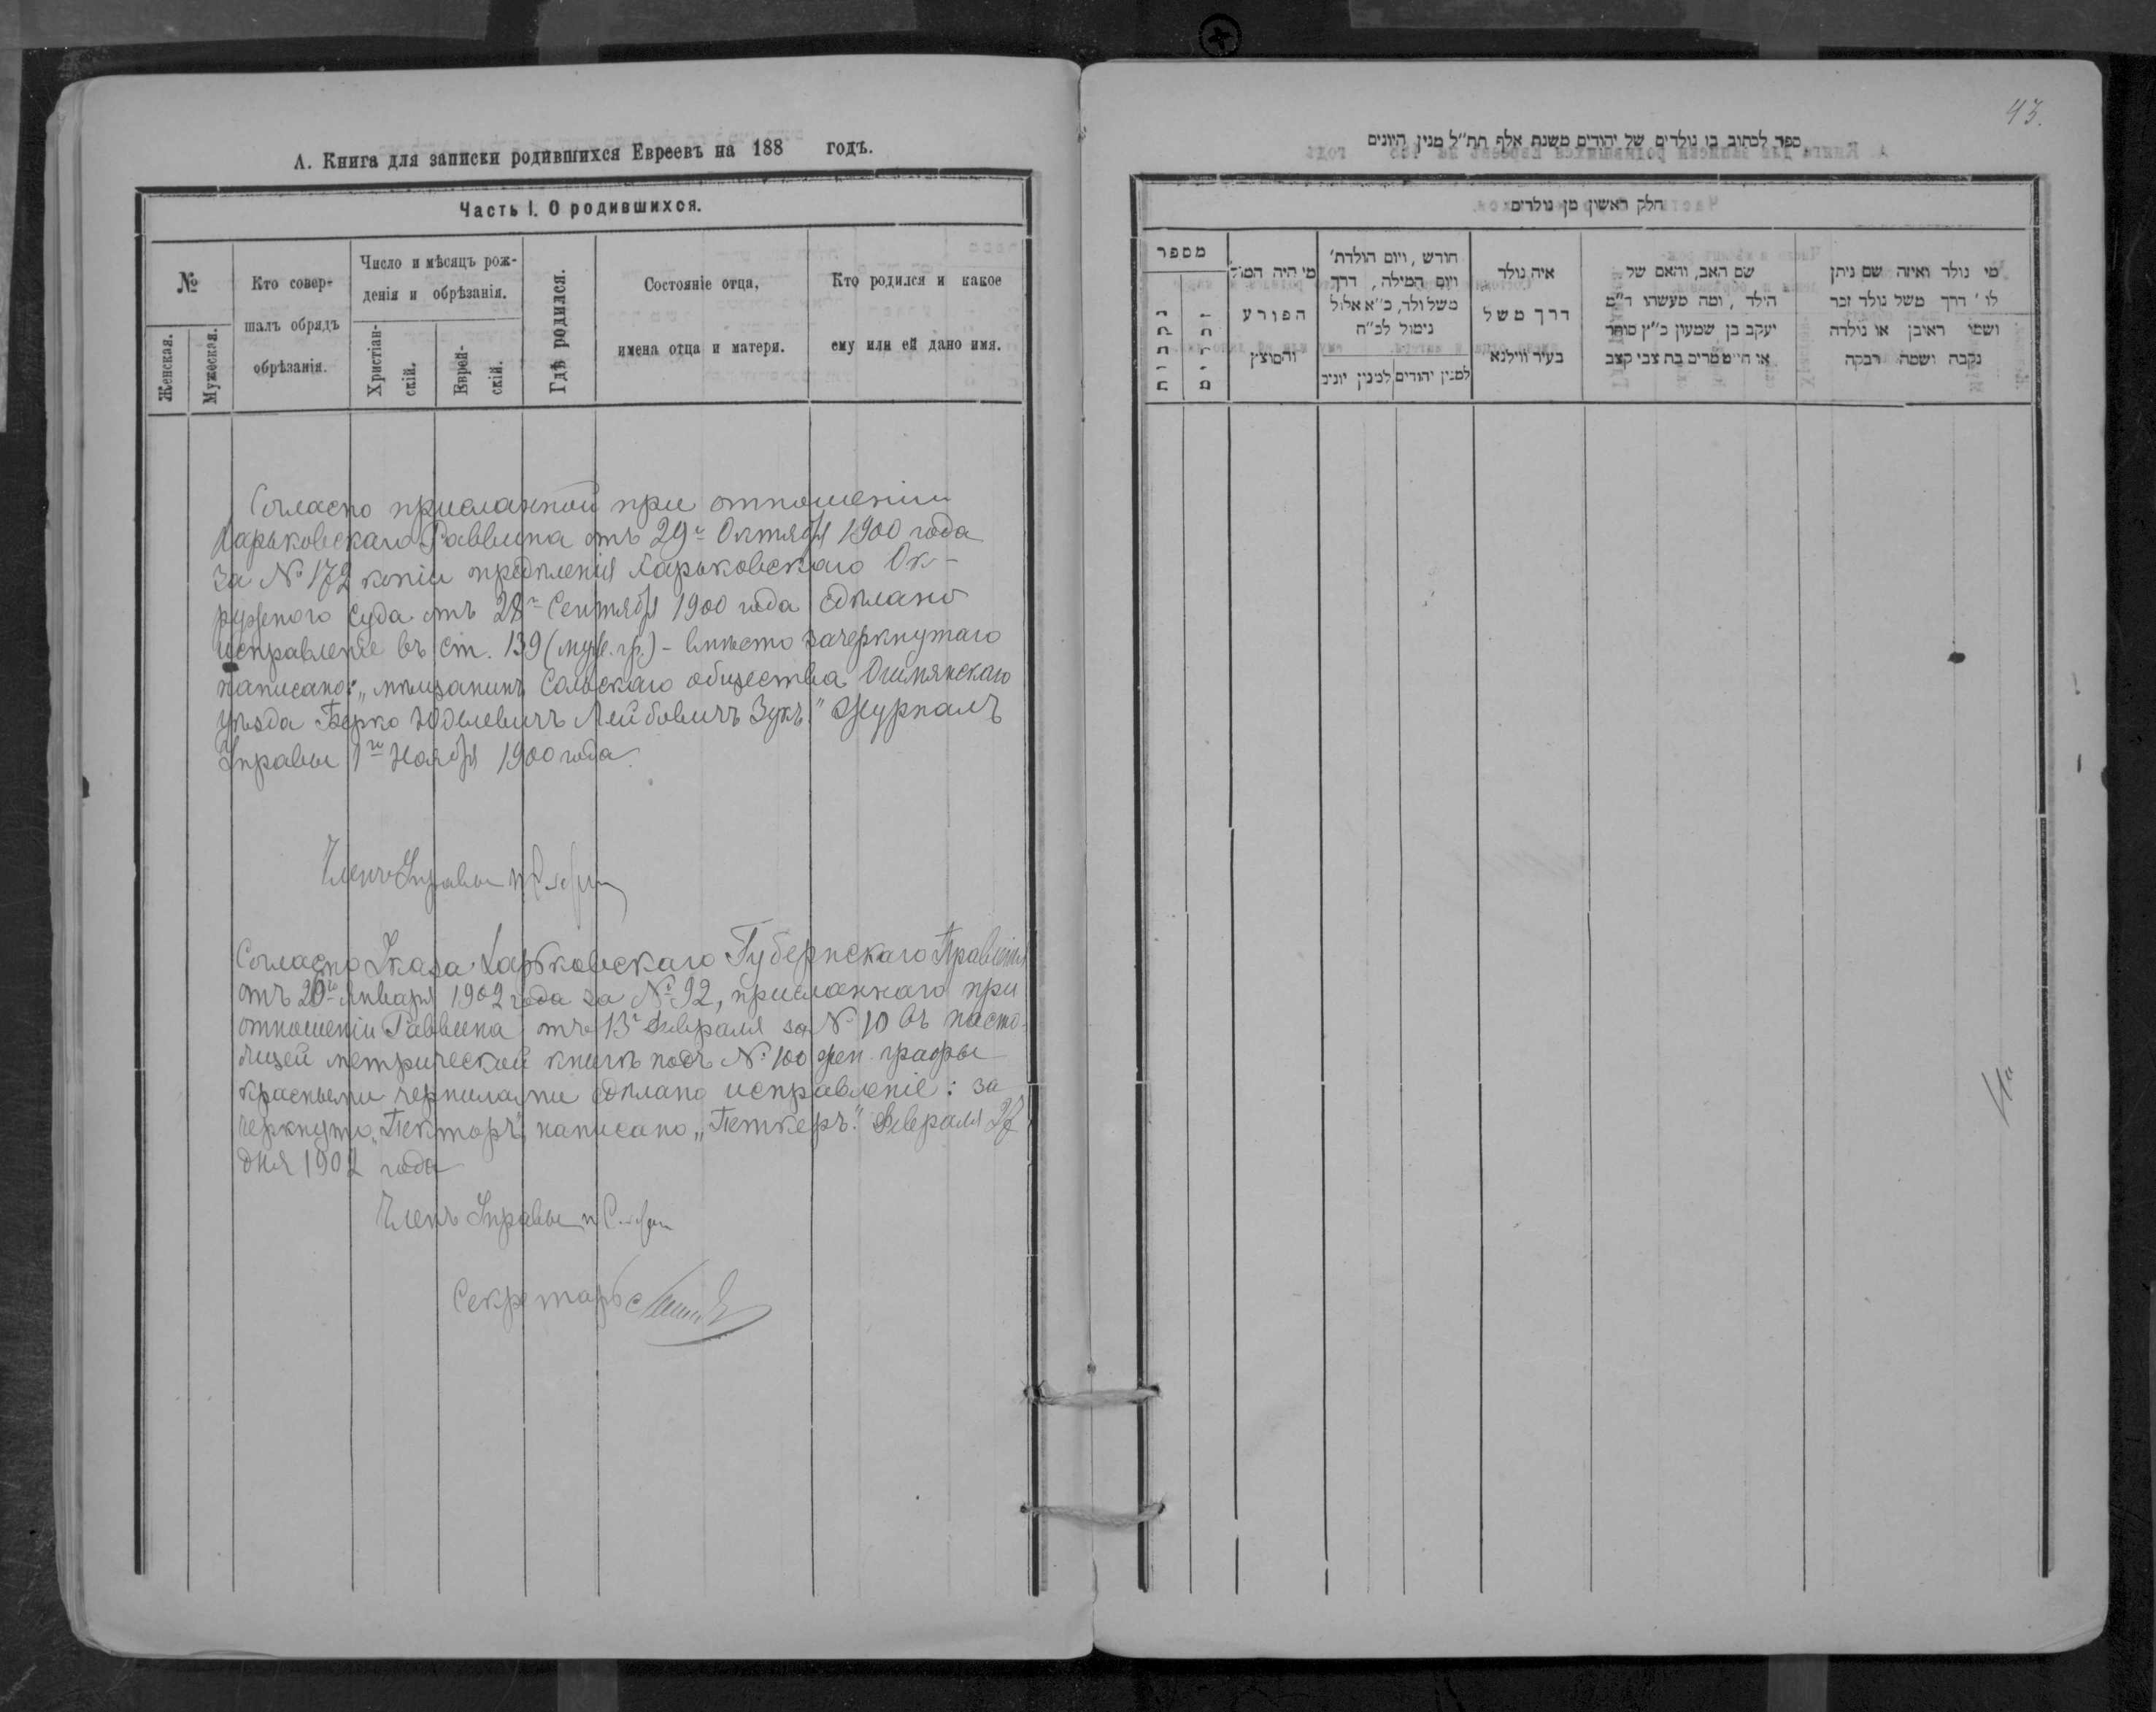 А. Книга для записки родившихся Евреевъ на 188 годъ.
Часть I. О родившихся.
№
Женская.
Мужеская.
Кто совер-
шалъ обрядъ
обрѣзанія.
Число и мѣсяцъ рож-
денія и обрѣзанія.
Христіан-
скій.
Еврей-
скій.
Гдѣ родился.
Состояніе отца,
имена отца и матери.
Кто родился и какое
ему или ей дано имя.
Согласно присланной при отношеніи
Харьковскаго Раввина отъ 29го Октября 1900 года
за № 172 копіи опредѣленія Харьковскаго Ок-
ружного Суда отъ 28го Сентября 1900 года сдѣлано
исправленіе въ ст. 139 (муж. гр.) - вмѣсто зачеркнутаго
написано: „мѣщанинъ Сольскаго общества Ошмянскаго
уѣзда Берко Юделевичъ Лейбовичъ Зукъ." Журналъ
Управы 1го Ноября 1900 года.
Членъ Управы
Согласно Указа Харьковскаго Губернскаго Правленія
отъ 20го Января 1902 года за № 92, присланнаго при
отношеніи Раввина отъ 13го Февраля за № 10 въ насто-
ящей метрической книгѣ подъ № 100 жен. графы
красными чернилами сдѣлано исправленіе: за
черкнуто „Пекторъ", написано „Петкеръ". Февраля 27
дня 1902 года
Членъ Управы
Секретарь
43.
ספר לכתוב בו נולדים של יהודים משנת אלף תת״ל מנין היונים
חלק ראשון מן נולדים
מספר
נקבות
זכרים
מי היה המוהל
הפורע
והמוצץ
חודש, ויום הולדת׳
ויום המילה, דרך
משל ולד, כ״א אלול
נימול לכ״ח
למנין יהודים
למנין יונים
איה נולד
דרך משל
בעיר ווילנא
שם האב, והאם של
הילד, ומה מעשהו ד״מ
יעקב בן שמעון כ״ץ סוחר
או חייט מרים בת צבי קצב
מי נולד ואיזה שם ניתן
לו ׳ דרך משל נולד זכר
ושמו ראובן או נולדה
נקבה ושמה רבקה